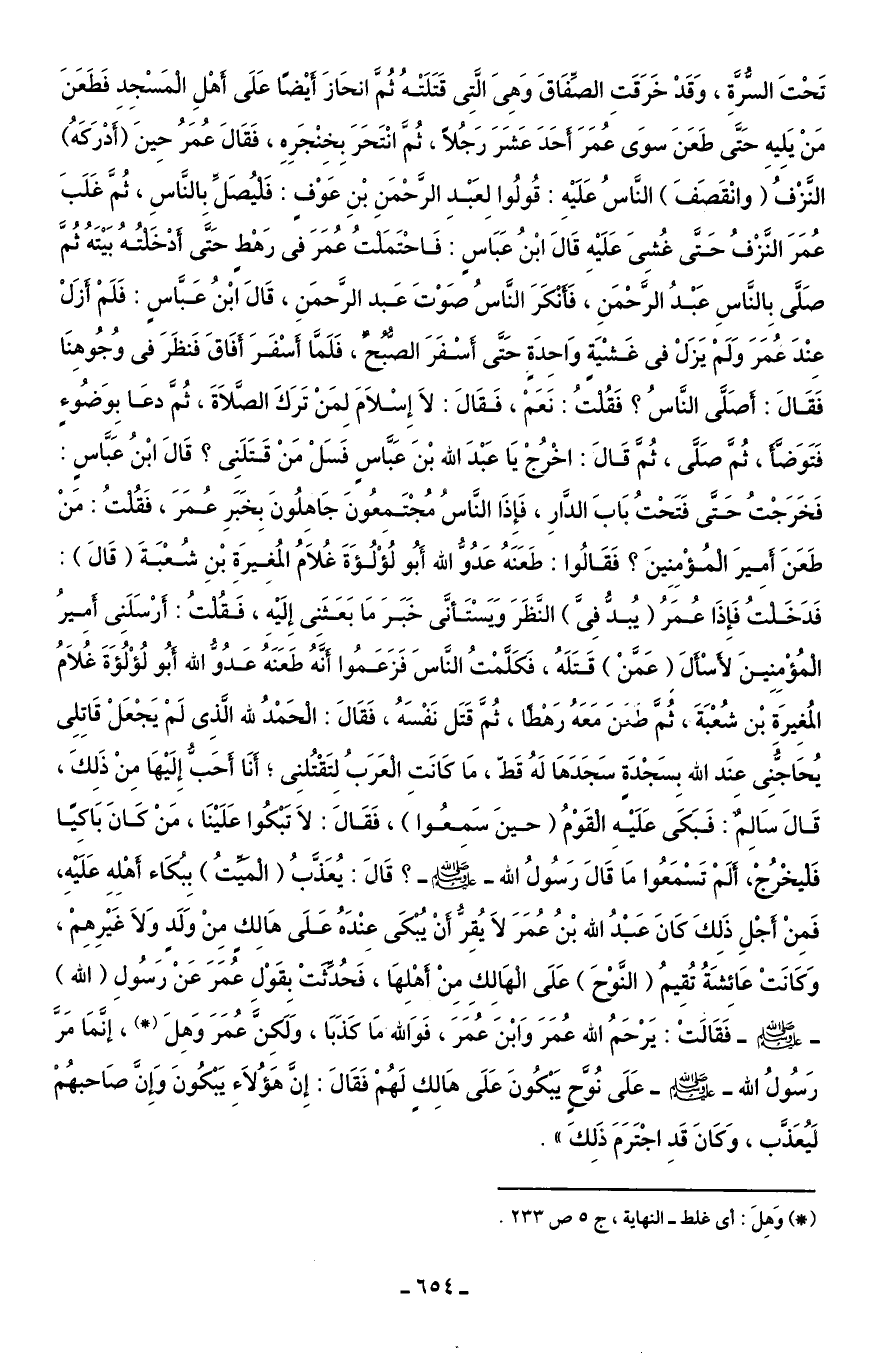 تَحْتَ السُّرَّةِ ، وَقَدْ خَرَقَتِ الصِّفَاقَ وَهِىَ الَّتِى قَتَلَتْهُ ثُمَّ انحَازَ أَيْضًا عَلَى أَهْلِ الْمَسْجِدِ فَطَعَنَ
مَنْ يَلِيهِ حَتَّى طَعَنَ سِوَى عُمَرَ أَحَدَ عَشَرَ رَجُلاً ، ثُمَّ انْتَحَرَ بِخِنْجَرِهِ ، فَقَالَ عُمَرُ حِينَ (أَدْرَكَهُ)
النَّزْفُ ( وانْقَصَفَ ) النَّاسُ عَلَيْهِ : قُولُوا لِعَبْدِ الرَّحْمَنِ بْنِ عَوْفٍ : فَلْيُصَلِّ بِالنَّاسِ ، ثُمَّ غَلَبَ
عُمَرَ النَّزْفُ حَتَّى غُشِىَ عَلَيْهِ قَالَ ابْنُ عَبَاسٍ : فَاحْتَمَلْتُ عُمَرَ فِى رَهْطٍ حَتَّى أَدْخَلْتُهُ بَيْتَهُ ثُمَّ
صَلَّى بِالنَّاسِ عَبْدُ الرَّحْمَنِ ، فَأَنْكَرَ النَّاسُ صَوْتَ عَبدِ الرحمَنِ ، قَالَ ابْنُ عَبَّاسٍ : فَلَمْ أَزَلْ
عِنْدَ عُمَرَ وَلَمْ يَزَلْ فِى غَشْيَةٍ وَاحِدَةٍ حَتَّى أَسْفَرَ الصُّبْحُ ، فَلَمَّا أَسْفَرَ أَفَاقَ فَنظَرَ فِى وُجُوهِنَا
فَقَالَ : أَصَلَّى النَّاسُ ؟ فَقُلْتُ : نَعَمْ ، فَقَالَ : لاَ إِسْلاَمَ لِمَنْ تَرَكَ الصَّلاَةَ ، ثُمَّ دعَا بِوَضُوءٍ
فَتَوَضَّأَ ، ثُمَّ صَلَّى ، ثُمَّ قَالَ : اخْرُجْ يَا عَبْدَ الله بْنَ عَبَّاسٍ فَسَلْ مَنْ قَتَلَنِى ؟ قَالَ ابْنُ عَبَّاسٍ :
فَخَرَجْتُ حَتَّى فَتَحْتُ بَابَ الدَّارِ ، فَإِذَا النَّاسُ مُجْتَمِعُونَ جَاهِلُونَ بِخَبَرِ عُمَرَ ، فَقُلْتُ : مَنْ
طَعَنَ أَمِيرَ الْمُؤْمِنِينَ ؟ فَقَالُوا : طَعَنَهُ عَدُوُّ الله أَبُو لُؤْلُؤَةَ غُلاَمُ المُغِيرَةِ بْنِ شُعْبَةَ ( قَالَ ) :
فَدَخَلْتُ فَإِذَا عُمَرُ ( يُبِدُّ فِىَّ ) النَّظَرَ وَيَسْتَأْنِى خَبَرَ مَا بَعَثَنِى إِلَيْهِ ، فَقُلْتُ : أَرْسَلَنِى أَمِيرُ
الْمُؤْمِنِينَ لأَسْأَلَ ( عَمَّنْ ) قَتَلَهُ ، فَكَلَّمْتُ النَّاسَ فَزَعَمُوا أَنَّهُ طَعَنَهُ عَدُوُّ الله أَبُو لُؤْلُؤَةَ غُلاَمُ
المُغِيرَةِ بْنِ شُعْبَةَ ، ثُمَّ طَعَنَ مَعَهُ رَهْطًا ، ثُمَّ قَتَلَ نَفْسَهُ ، فَقَالَ : الْحَمْدُ لله الَّذِى لَمْ يَجْعَلْ قَاتِلِى
يُحَاجُّنِى عِنَد الله بِسَجْدَةٍ سَجَدَهَا لَهُ قَطّ ، مَا كَانَتِ الْعَرَبُ لِتَقْتُلنِى ؛ أَنَا أَحَبُّ إِلَيْهَا مِنْ ذَلِكَ ،
قَالَ سَالِمٌ : فَبَكَى عَلَيْهِ الْقَوْمُ ( حِينَ سَمِعُوا ) ، فَقَالَ : لاَ تَبْكُوا عَلَيْنَا ، مَنْ كَانَ بَاكِيًا
فَلْيَخْرُجْ، أَلَمْ تَسْمَعُوا مَا قَالَ رَسُولُ الله ـ ﷺ ـ ؟ قَالَ : يُعَذَّبُ ( الْمَيِّتُ ) بِبُكَاءِ أَهْلِهِ عَلَيْهِ،
فَمِنْ أَجْلِ ذَلِكَ كَانَ عَبْدُ الله بْنُ عُمَرَ لاَ يُقِرُّ أَنْ يُبْكَى عِنْدَهُ عَلَى هَالِكٍ مِنْ وَلَدٍ وَلاَ غَيْرِهِمْ ،
وَكَانَتْ عَائِشَةُ تُقِيمُ ( النَّوْحَ ) عَلَى الْهَالِكِ مِنْ أَهْلِهَا ، فَحُدِّثَتْ بِقَوْلِ عُمَرَ عَنْ رَسُولِ ( الله )
ـ ﷺ ـ فَقَالَتْ : يَرْحَمُ الله عُمَرَ وَابْنَ عُمَرَ ، فَوَالله مَا كَذَبَا ، وَلَكِنَّ عُمَرَ وَهِلَ (*) ، إِنَّمَا مَرَّ
رَسُولُ الله ـ ﷺ ـ عَلَى نُوَّحٍ يَبْكُونَ عَلَى هَالِكٍ لَهُمْ فَقَالَ : إِنَّ هَؤُلاَءِ يَبْكُونَ وَإِنَّ صَاحِبَهُمْ
لَيُعَذَّب ، وَكَانَ قَدِ اجْتَرَمَ ذَلِكَ » .
(*) وَهِلَ : أى غلط ـ النهاية ، ج ٥ ص ٢٣٣ .
ـ ٦٥٤ ـ